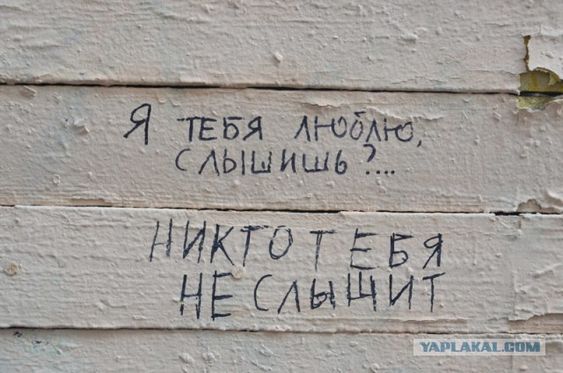 Я ТЕБЯ ЛЮБЛЮ,
СЛЫШИШЬ?....
НИКТО ТЕБЯ
НЕ СЛЫШИТ
YAPLAKAL.COM